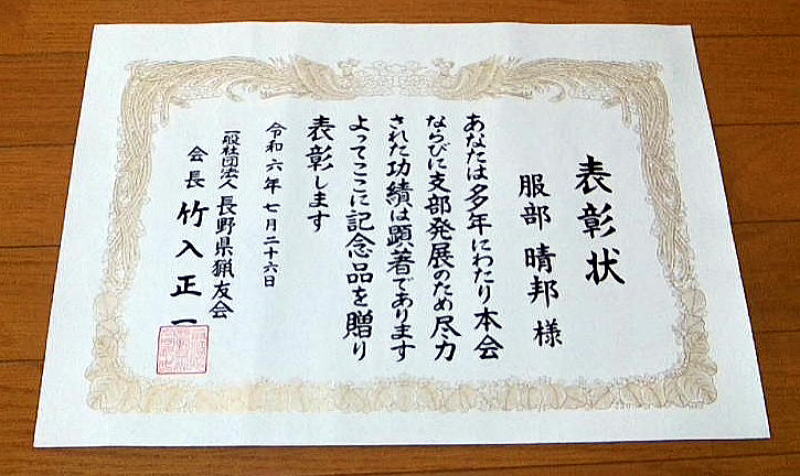 表彰状
服部晴邦様
あなたは多年にわたり本会
ならびに支部発展のため尽力
された功績は顕著であります
よってここに記念品を贈り
表彰します
令和六年七月二十六日
一般社団法人長野県猟友会
会長竹入正一